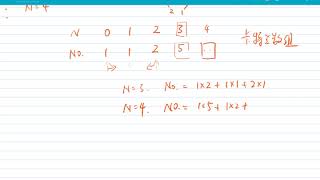 N=4
2 1
N 0 1 2 3 4
NO. 1 1 2 5
N=3. NO. = 1×2 + 1×1 + 2×1
N=4. NO. = 1×5 + 1×2 +